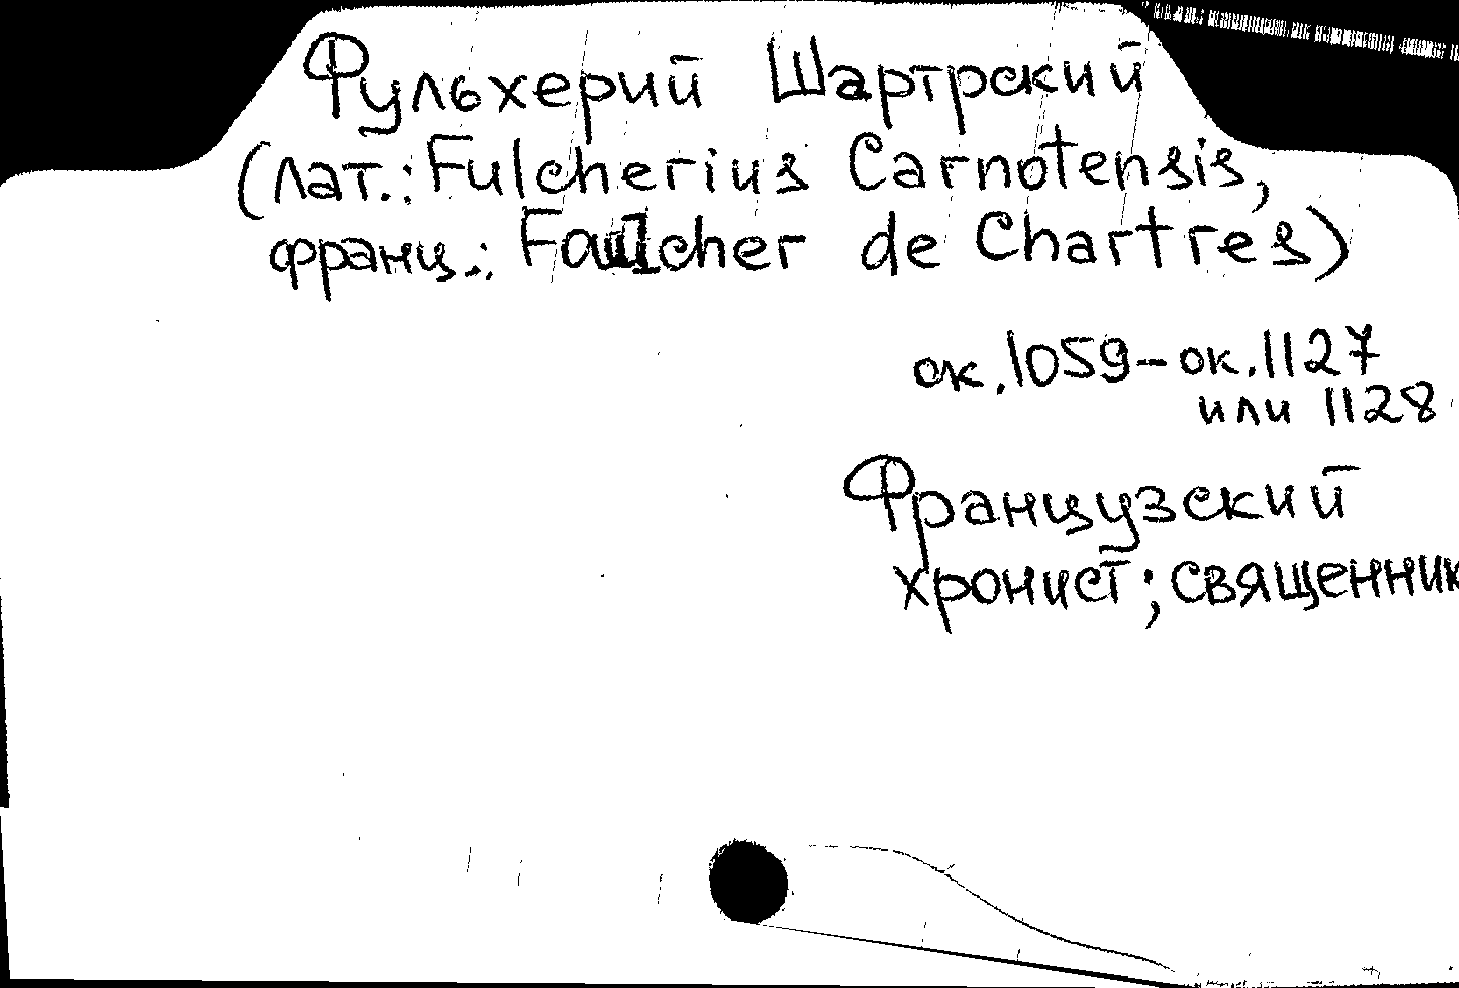 Фульхерий Шартрский
(лат.: Fulcherius Carnotensis,
франц.: Foulcher de Chartres)
ок. 1059 – ок. 1127
или 1128
Французский
хронист; священник